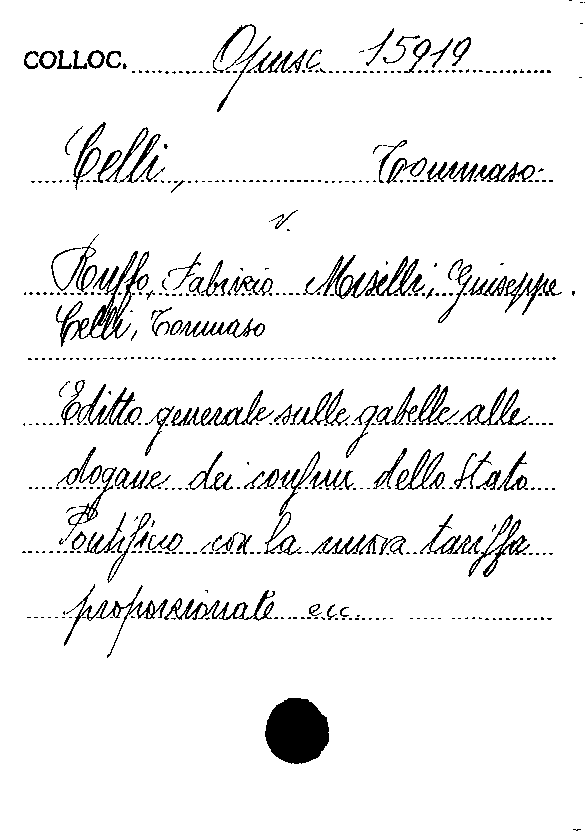 COLLOC. Opusc. 15919
Celli, Tommaso
v.
Ruffo, Fabrizio Miselli, Giuseppe.
Celli, Tommaso
Editto generale sulle gabelle alle
dogane dei confini dello Stato
Pontificio con la nuova tariffa
proporzionale ecc.